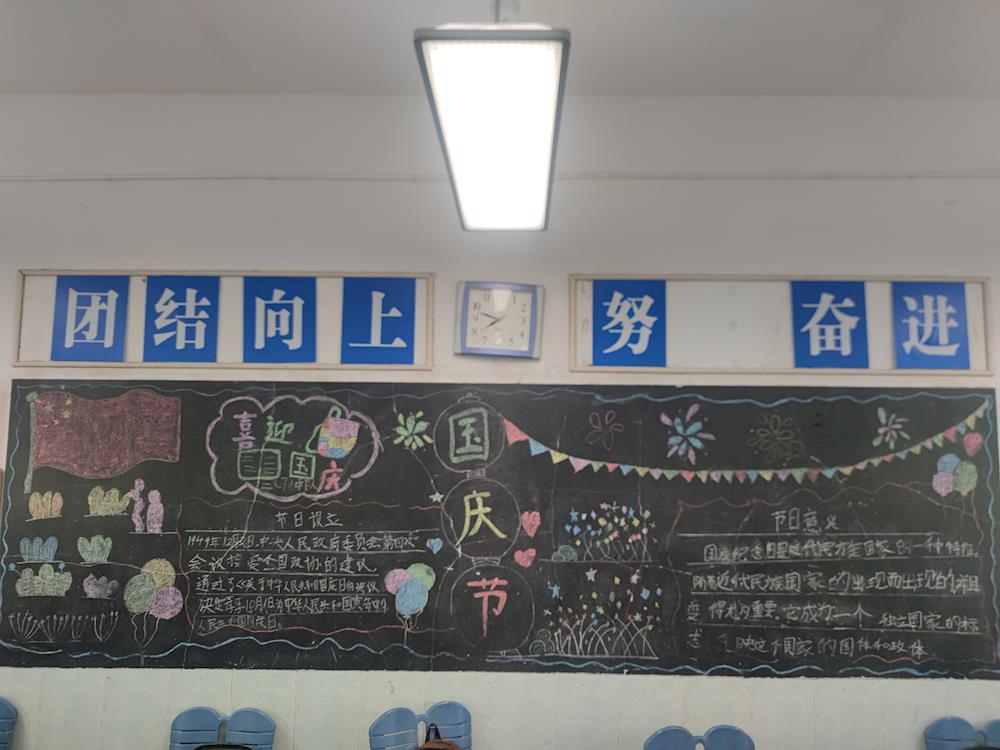 团结向上
努 奋进
喜迎国庆
国庆节
节日设立
1949年12月2日,中央人民政府委员会第四次
会议接受全国政协的建议,
通过了《关于中华人民共和国国庆日的决议》
决定每年10月1日为中华人民共和国
人民共和国国庆日。
节日意义
国庆纪念日是近代民族国家的一种特征,
随着近代民族国家的出现而出现的,
变得尤为重要。它成为一个独立国家的标
志,反映这个国家的国体和政体